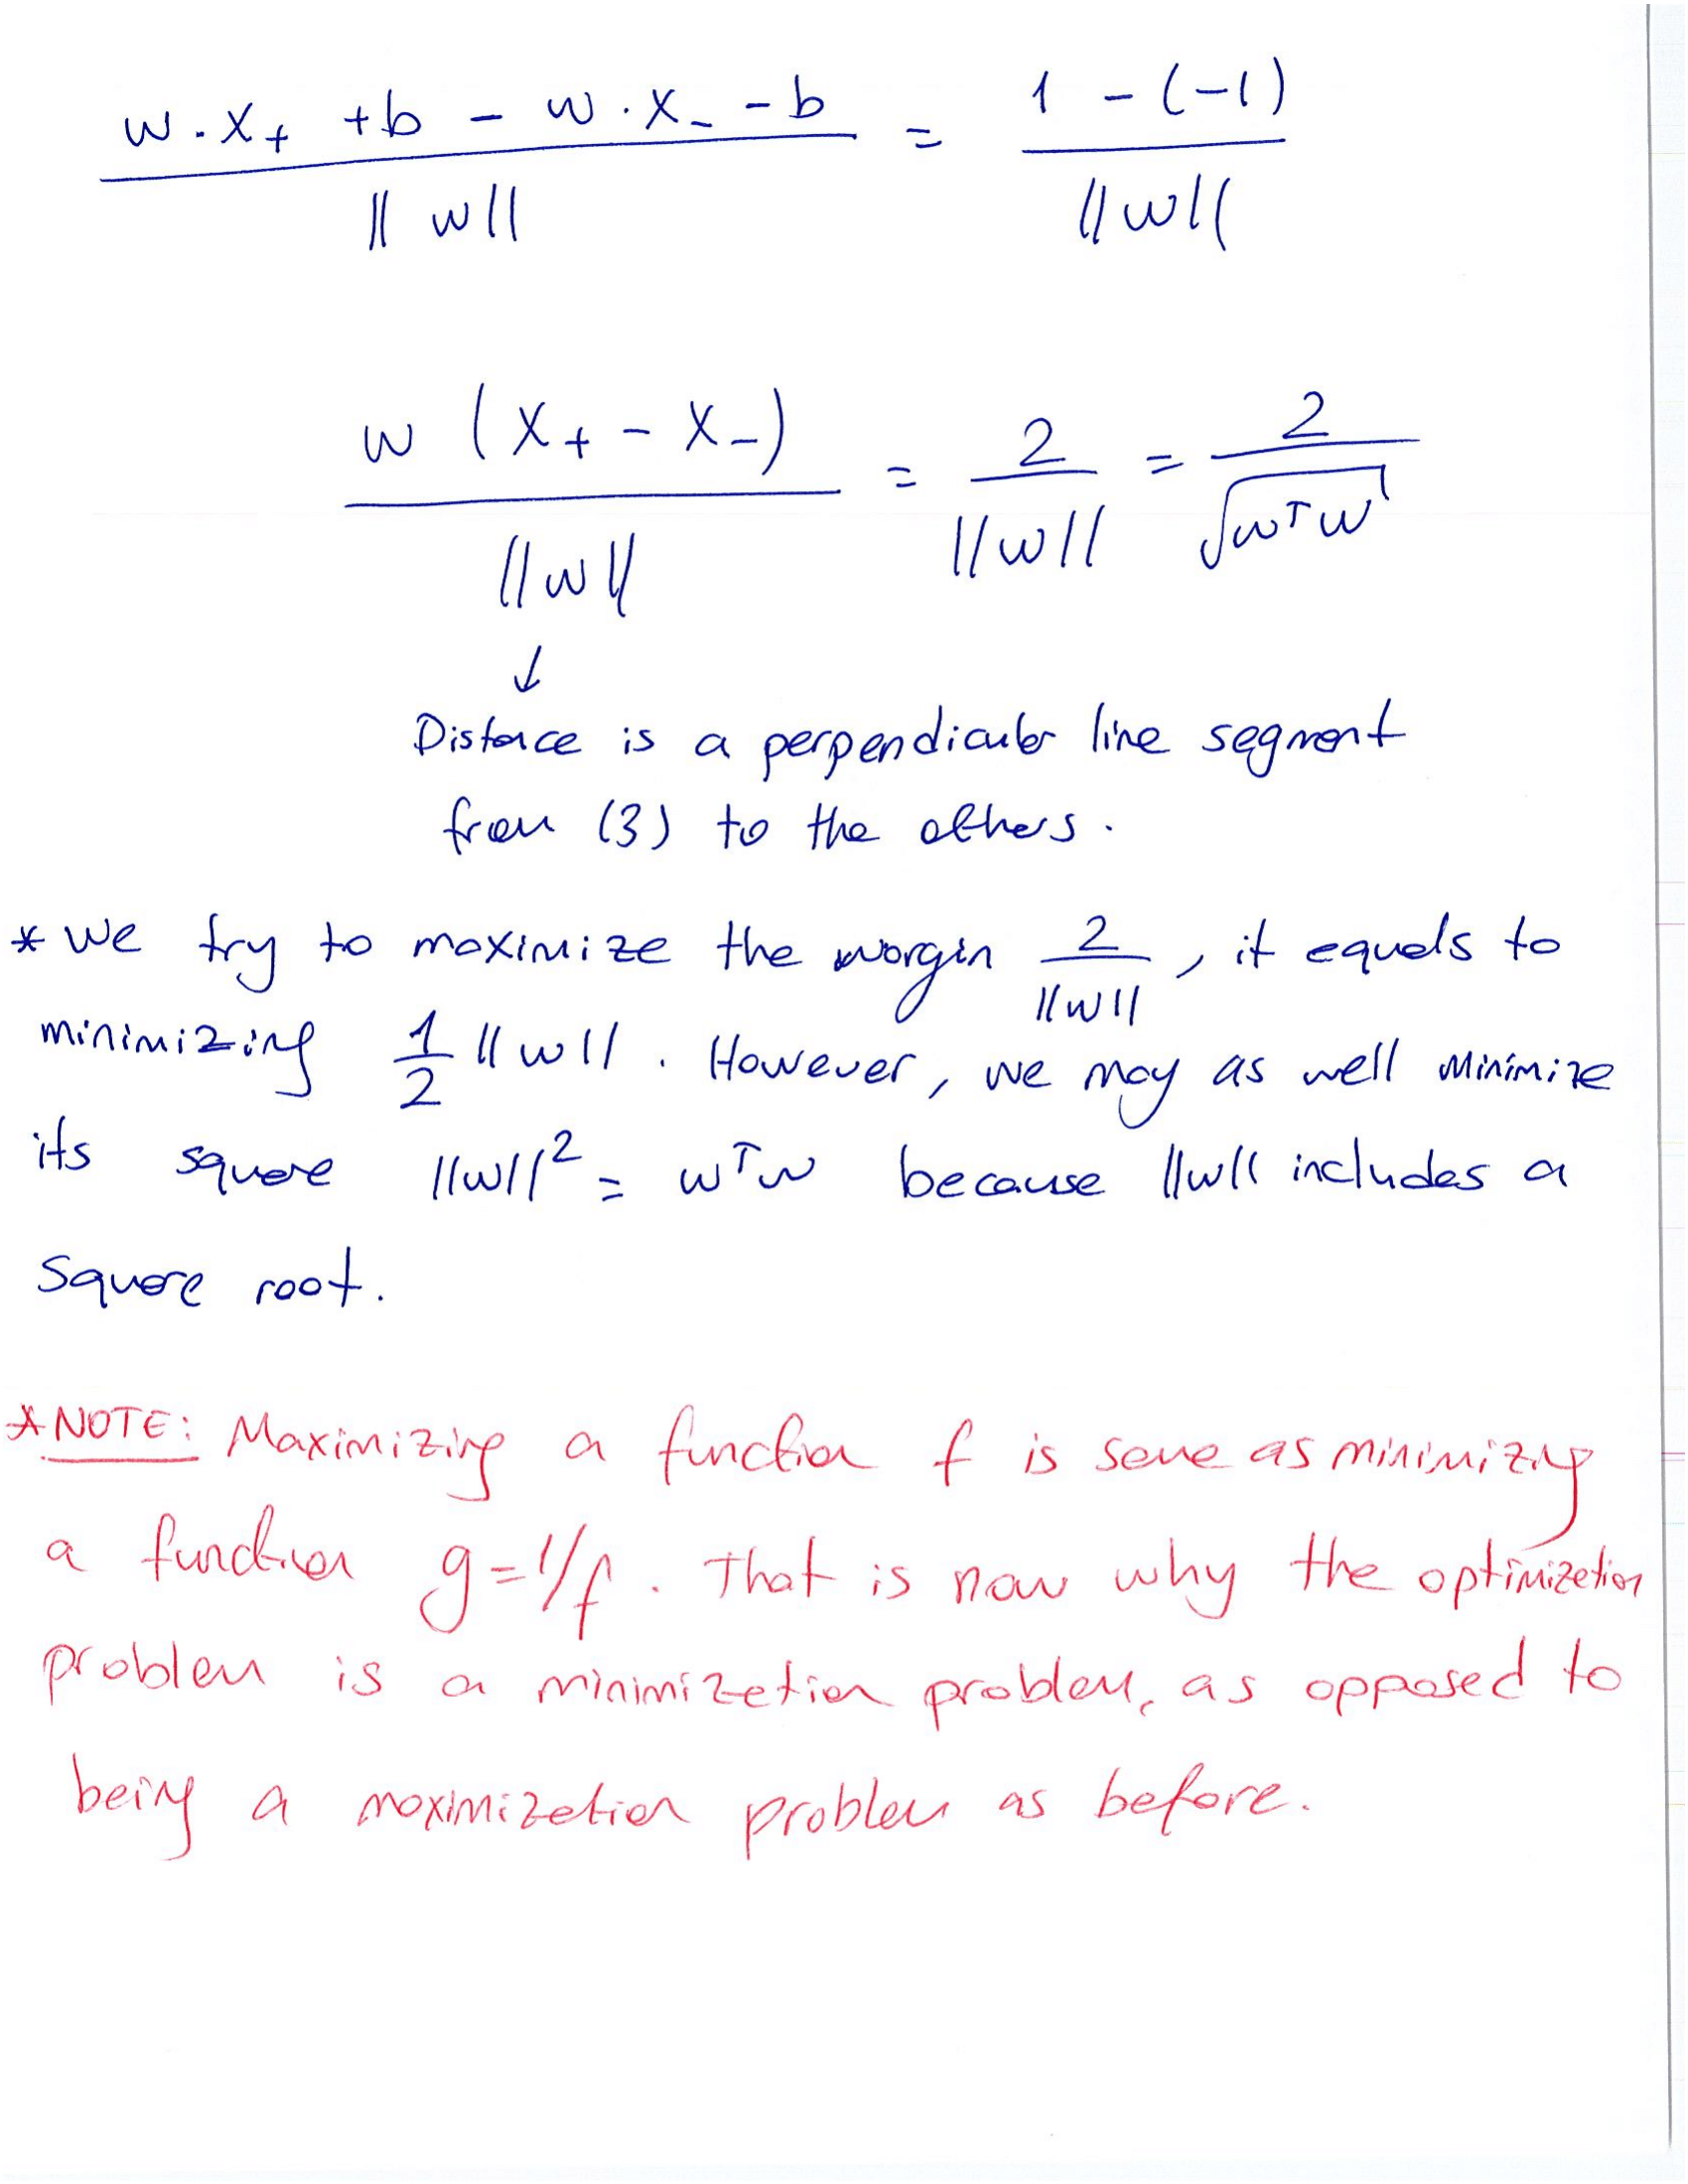 w . x₊ + b - w . x₋ - b / ||w|| = 1 - (-1) / ||w||
w (x₊ - x₋) / ||w|| = 2 / ||w|| = 2 / √wᵀw
↓
Distance is a perpendicular line segment
from (3) to the others.
* We try to maximize the margin 2/||w||, it equals to
minimizing 1/2 ||w||. However, we may as well minimize
its square ||w||² = wᵀw because ||w|| includes a
square root.
* NOTE: Maximizing a function f is same as minimizing
a function g=1/f. That is now why the optimization
problem is a minimization problem, as opposed to
being a maximization problem as before.